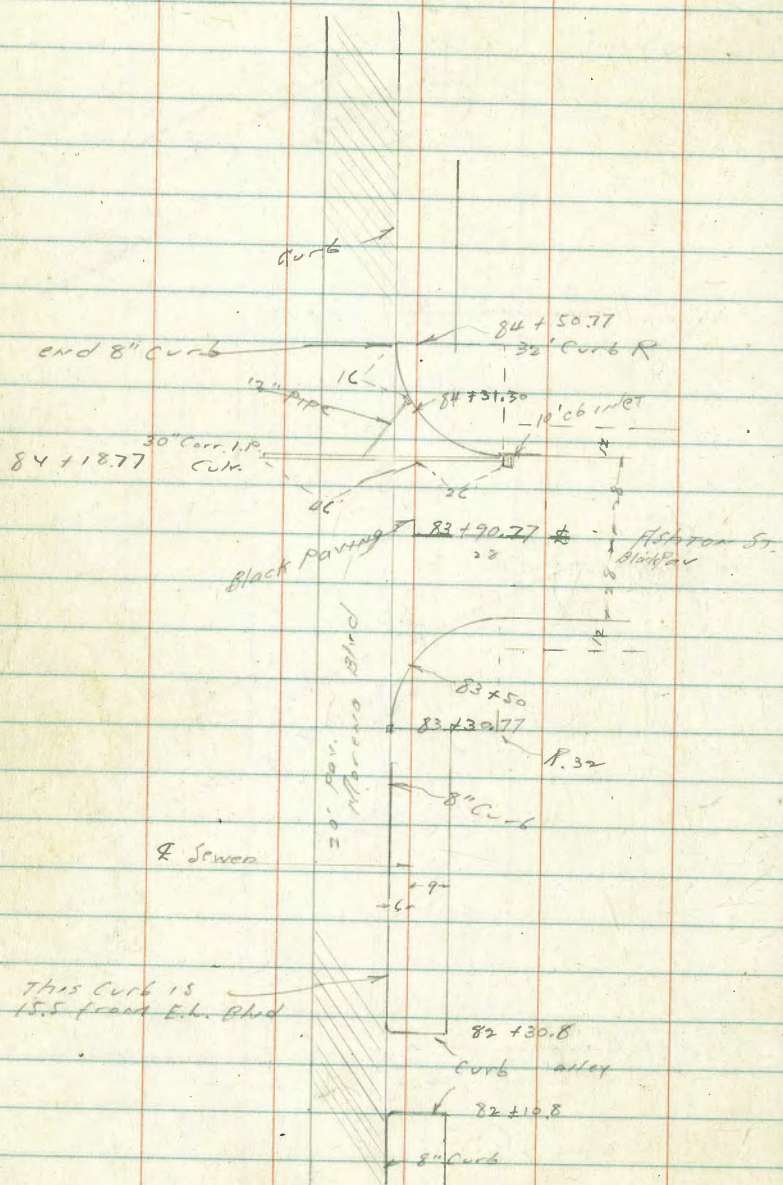 Curb
84 + 50.77
32' Curb R
end 8" Curb
16
12" Pipe
84 + 31.30
10' CB inlet
12
30" Corr. I.P.
Culv.
84 + 18.77
46
26
28
Block Paving
83 + 90.77 ℄
28
Ashton St.
Block Pav
28
12
20' Pav.
Morena Blvd
83 + 50
83 + 30.77
R. 32
8" Curb
℄ Sewer
9
6
This Curb is
15.5 from E.L. Blvd
82 + 30.8
Curb alley
82 + 10.8
8" Curb